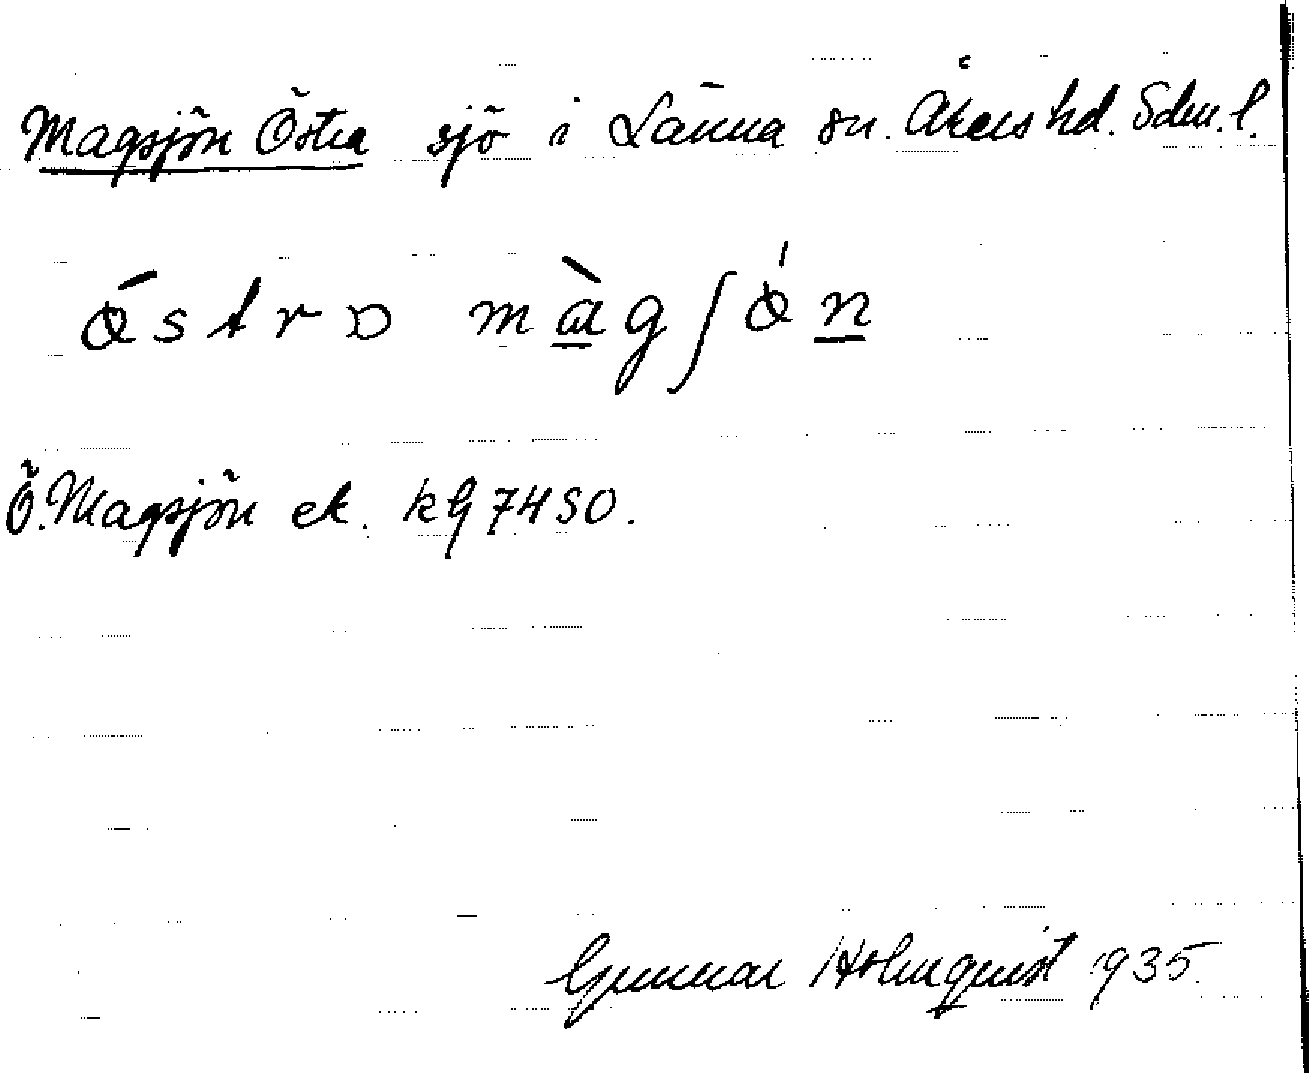 Magsjön Östra sjö i Länna sn. Åkers hd. Sdm. l.
ǿstrɒ màgʃǿn
Ö. Magsjön ek. kG 7450.
Gunnar Holmquist 1935.